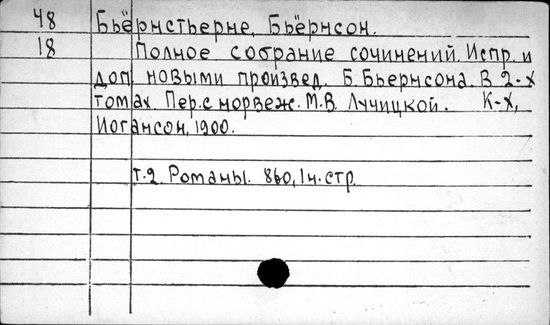 48 Бьёрнстьерне, Бьёрнсон.
18 Полное собрание сочинений. Испр. и
доп. новыми произвед. Б. Бьернсона. В 2-х
томах. Пер. с норвеж. М.В. Лучицкой. К-Х,
Иогансон, 1900.
т.2. Романы. 860, 1н. стр.